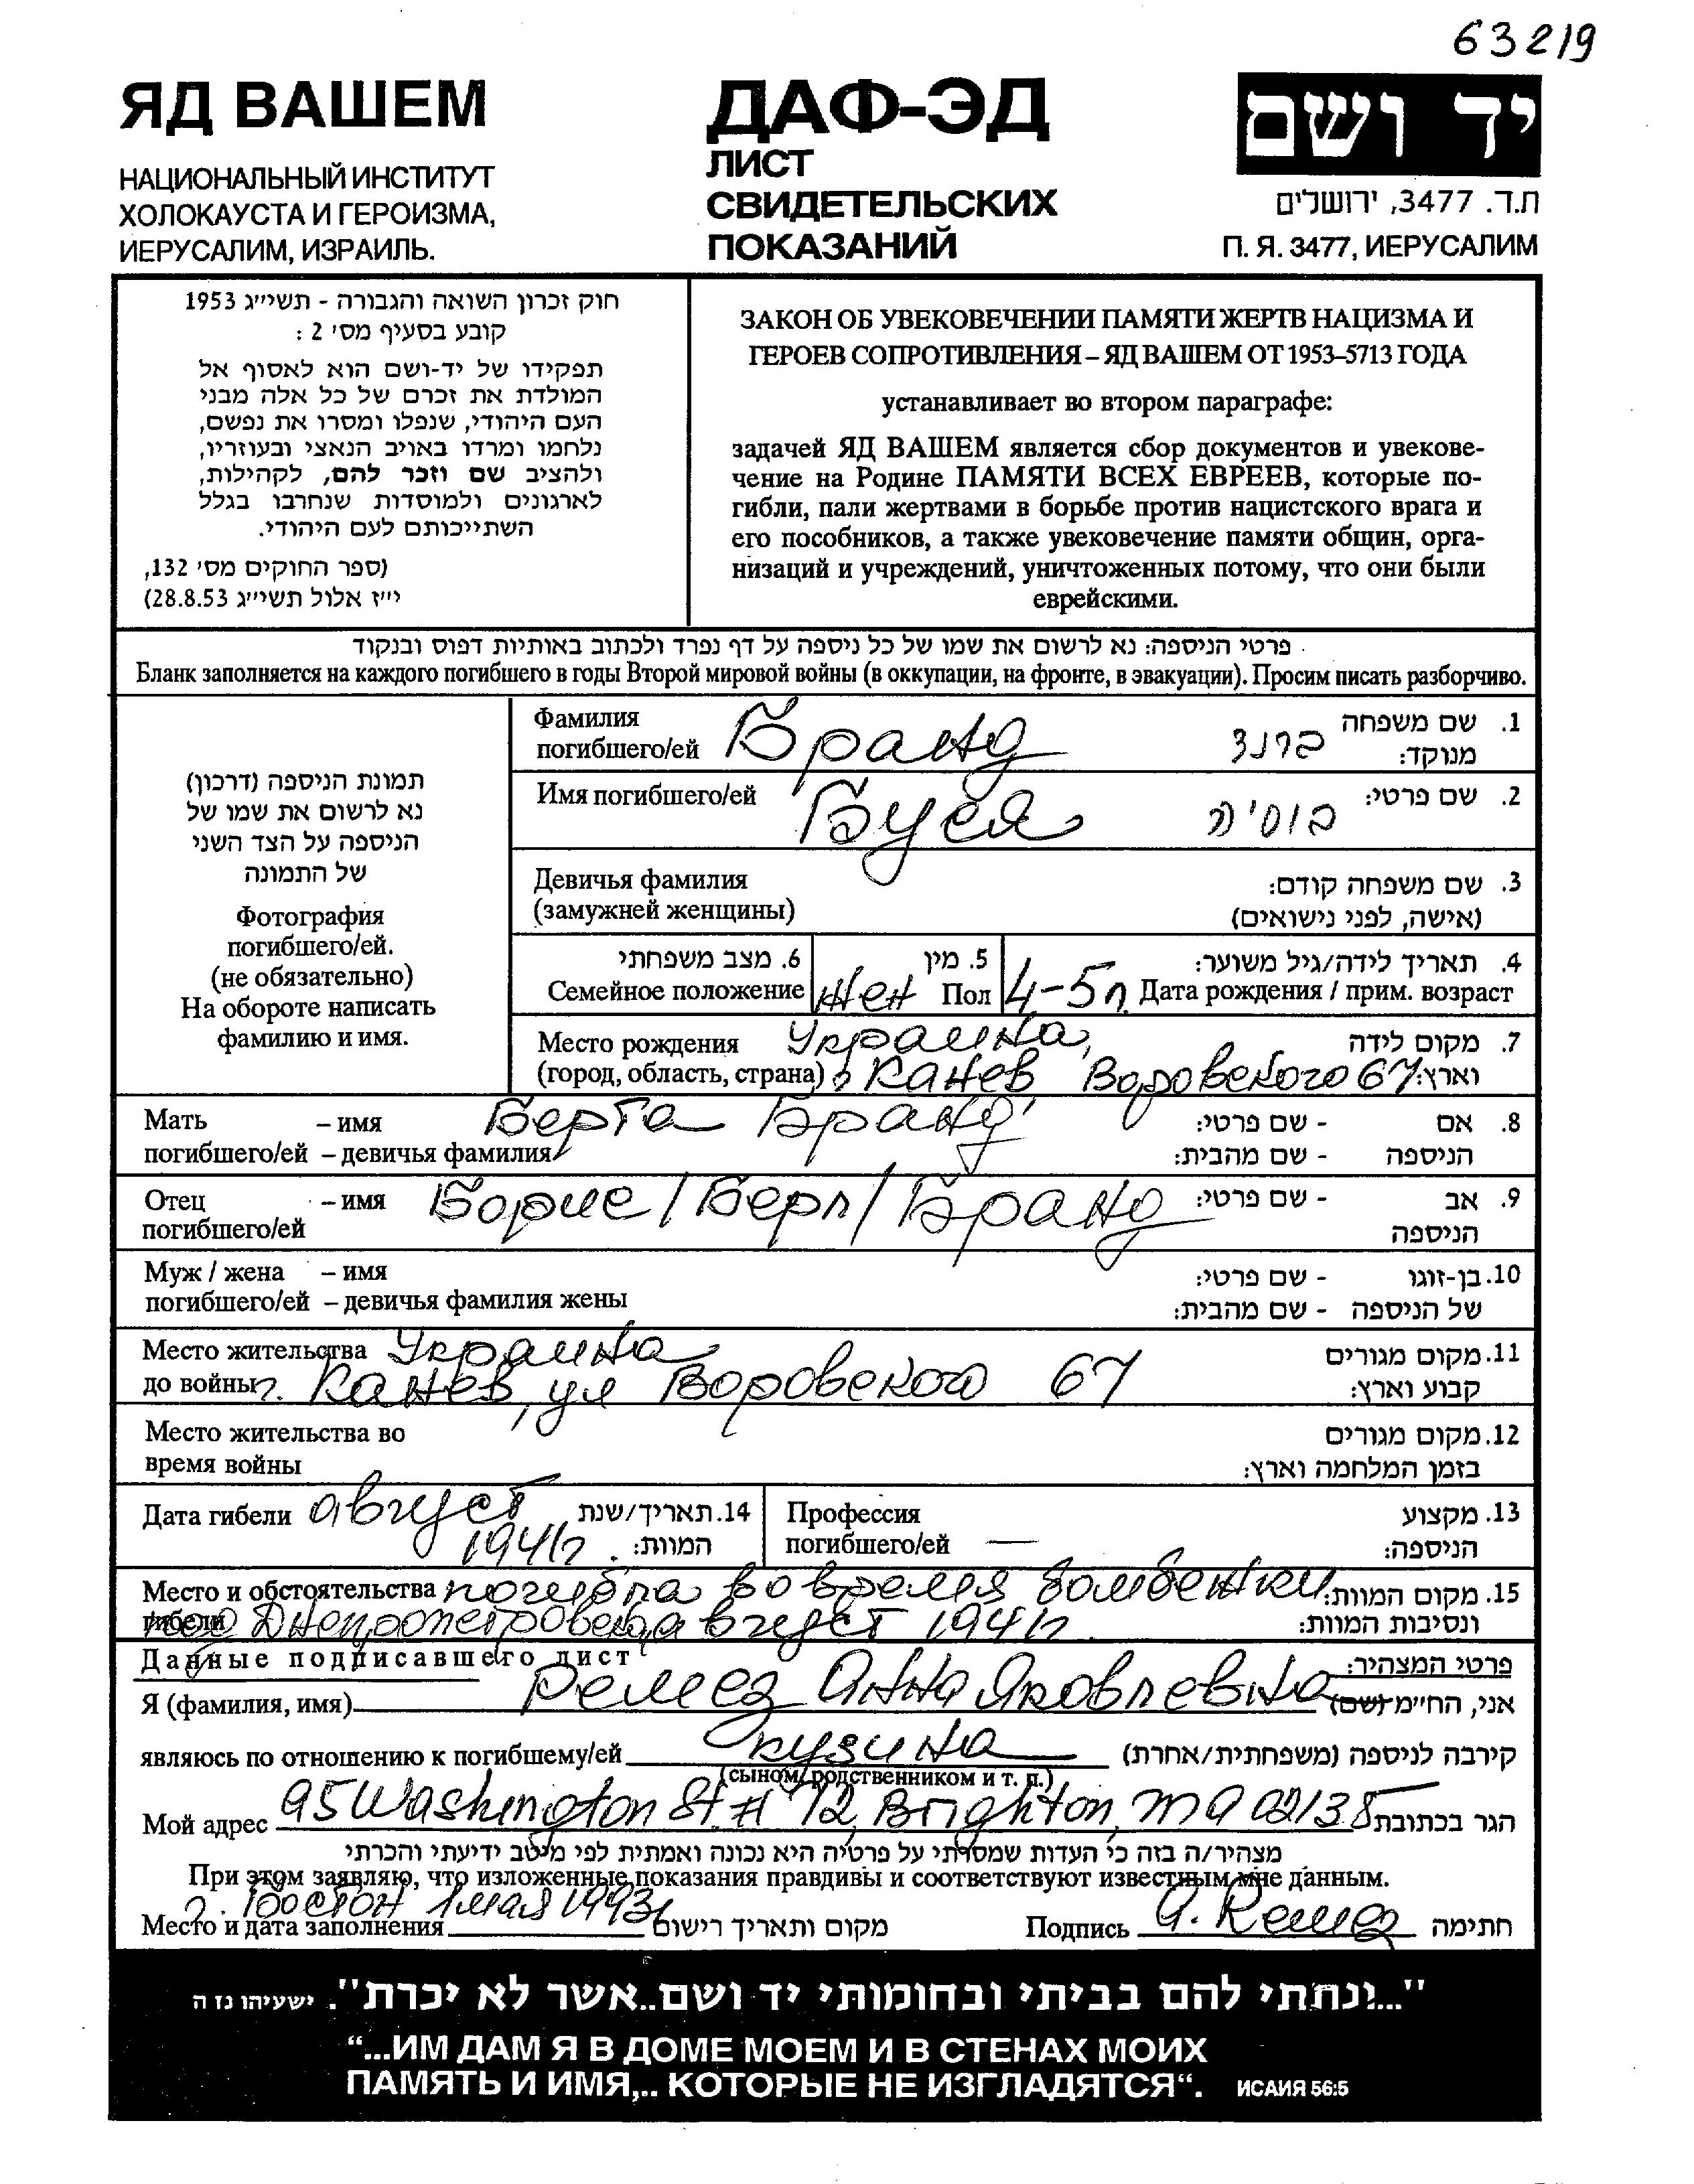 63219
ЯД ВАШЕМ
НАЦИОНАЛЬНЫЙ ИНСТИТУТ
ХОЛОКАУСТА И ГЕРОИЗМА,
ИЕРУСАЛИМ, ИЗРАИЛЬ.
ДАФ-ЭД
ЛИСТ
СВИДЕТЕЛЬСКИХ
ПОКАЗАНИЙ
יד ושם
ת.ד. 3477, ירושלים
П. Я. 3477, ИЕРУСАЛИМ
חוק זכרון השואה והגבורה - תשי״ג 1953
קובע בסעיף מס׳ 2 :
תפקידו של יד-ושם הוא לאסוף אל
המולדת את זכרם של כל אלה מבני
העם היהודי, שנפלו ומסרו את נפשם,
נלחמו ומרדו באויב הנאצי ובעוזריו,
ולהציב שם וזכר להם, לקהילות,
לארגונים ולמוסדות שנחרבו בגלל
השתייכותם לעם היהודי.
(ספר החוקים מס׳ 132,
י״ז אלול תשי״ג 28.8.53)
ЗАКОН ОБ УВЕКОВЕЧЕНИИ ПАМЯТИ ЖЕРТВ НАЦИЗМА И
ГЕРОЕВ СОПРОТИВЛЕНИЯ – ЯД ВАШЕМ ОТ 1953–5713 ГОДА
устанавливает во втором параграфе:
задачей ЯД ВАШЕМ является сбор документов и увекове-
чение на Родине ПАМЯТИ ВСЕХ ЕВРЕЕВ, которые по-
гибли, пали жертвами в борьбе против нацистского врага и
его пособников, а также увековечение памяти общин, орга-
низаций и учреждений, уничтоженных потому, что они были
еврейскими.
פרטי הניספה: נא לרשום את שמו של כל ניספה על דף נפרד ולכתוב באותיות דפוס ובנקוד
Бланк заполняется на каждого погибшего в годы Второй мировой войны (в оккупации, на фронте, в эвакуации). Просим писать разборчиво.
תמונת הניספה (דרכון)
נא לרשום את שמו של
הניספה על הצד השני
של התמונה
Фотография
погибшего/ей.
(не обязательно)
На обороте написать
фамилию и имя.
Фамилия Бранд ברנד 1. שם משפחה
погибшего/ей מנוקד:
Имя погибшего/ей Буся בוסיה 2. שם פרטי:
Девичья фамилия 3. שם משפחה קודם:
(замужней женщины) (אישה, לפני נישואים)
6. מצב משפחתי 5. מין 4. תאריך לידה/גיל משוער:
Семейное положение жен Пол 4-5л. Дата рождения / прим. возраст
Место рождения Украина, 7. מקום לידה
(город, область, страна) г Канев Воровского 67 וארץ:
Мать – имя Берта Бранд 8. אם - שם פרטי:
погибшего/ей – девичья фамилия הניספה - שם מהבית:
Отец – имя Борис /Берл/ Бранд 9. אב - שם פרטי:
погибшего/ей הניספה
Муж / жена – имя 10. בן-זוגו - שם פרטי:
погибшего/ей – девичья фамилия жены של הניספה - שם מהבית:
Место жительства Украина 11. מקום מגורים
до войны г. Канев, ул Воровского 67 קבוע וארץ:
Место жительства во 12. מקום מגורים
время войны בזמן המלחמה וארץ:
Дата гибели август 14. תאריך/שנת Профессия 13. מקצוע
1941г. המוות: погибшего/ей — הניספה:
Место и обстоятельства погибла во время бомбежки 15. מקום המוות:
гибели под Днепропетровском август 1941г. ונסיבות המוות:
Данные подписавшего лист פרטי המצהיר:
Я (фамилия, имя) Ремез Анна Яковлевна אני, החי״מ (שם)
являюсь по отношению к погибшему/ей кузина קירבה לניספה (משפחתית/אחרת)
(сыном, родственником и т. п.)
Мой адрес 95 Washington St. # 72, Brighton, MA 02135 הגר בכתובת
מצהיר/ה בזה כי העדות שמסרתי על פרטיה היא נכונה ואמתית לפי מיטב ידיעתי והכרתי
При этом заявляю, что изложенные показания правдивы и соответствуют известным мне данным.
г. Бостон 1 мая 1993г
Место и дата заполнения מקום ותאריך רישום Подпись А. Ремез חתימה
"...ונתתי להם בביתי ובחומותי יד ושם..אשר לא יכרת". ישעיהו נז ה
“...ИМ ДАМ Я В ДОМЕ МОЕМ И В СТЕНАХ МОИХ
ПАМЯТЬ И ИМЯ,.. КОТОРЫЕ НЕ ИЗГЛАДЯТСЯ“. ИСАИЯ 56:5